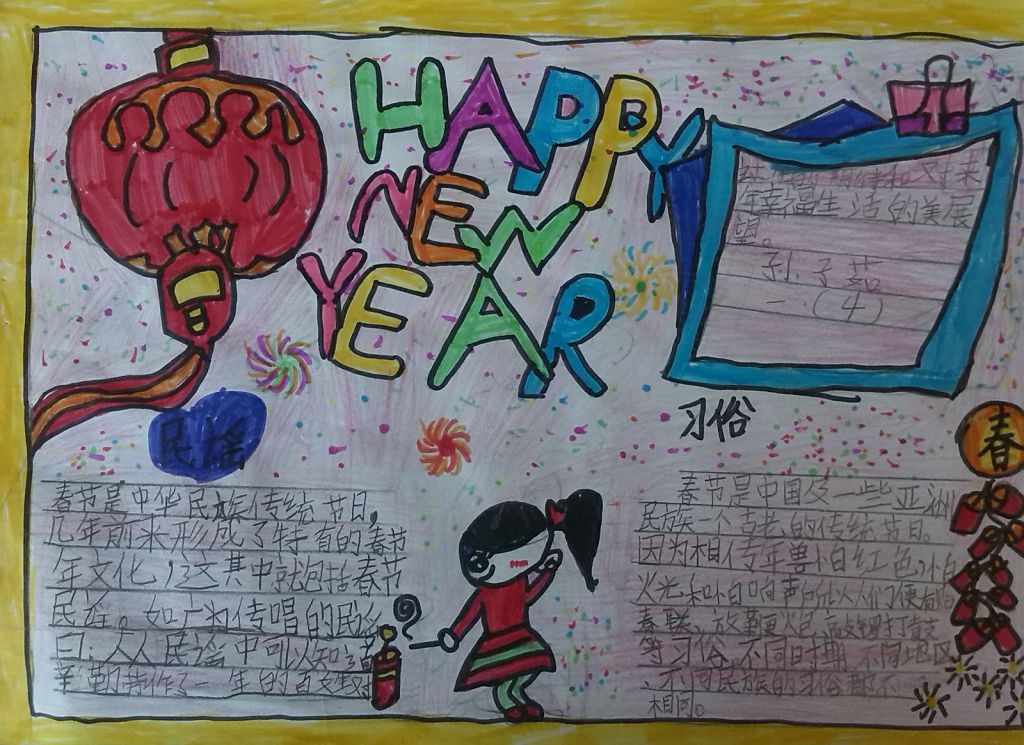 HAPPY
NEW
YEAR
对来
年幸福生活的美展
望。
孙子茹
一.(4)
民谣
春节是中华民族传统节日,
几年前来形成了特有的春节
年文化,这其中就包括春节
民谣。如广为传唱的民谣
曰:人人民谣中可以知道
一年的
习俗
春节是中国及一些亚洲
民族一个古老的传统节日。
因为相传年兽怕红色,怕
火光和怕响声所以人们便有贴
春联、放鞭炮、敲锣打鼓
等习俗,不同时期、不同地区
、不同民族的习俗都不
相同。
春